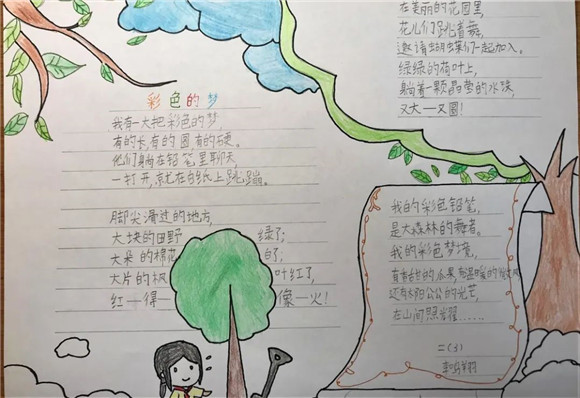 彩色的梦
我有一大把彩色的梦,
有的长,有的圆 有的硬。
他们躺在铅笔里聊天,
一打开,就在白纸上跳蹦。
脚尖滑过的地方,
大块的田野 绿了;
大朵的棉花 白了;
大片的枫 叶红了,
红—得— 像—火!
在美丽的花园里,
花儿们跳着舞,
邀请蝴蝶们一起加入。
绿绿的荷叶上,
躺着一颗晶莹的水珠,
又大—又圆!
我的彩色铅笔,
是大森林的舞者。
我的彩色梦境,
有香甜的水果,有温暖的
还有太阳公公的光芒
在山间照耀……
二(3)